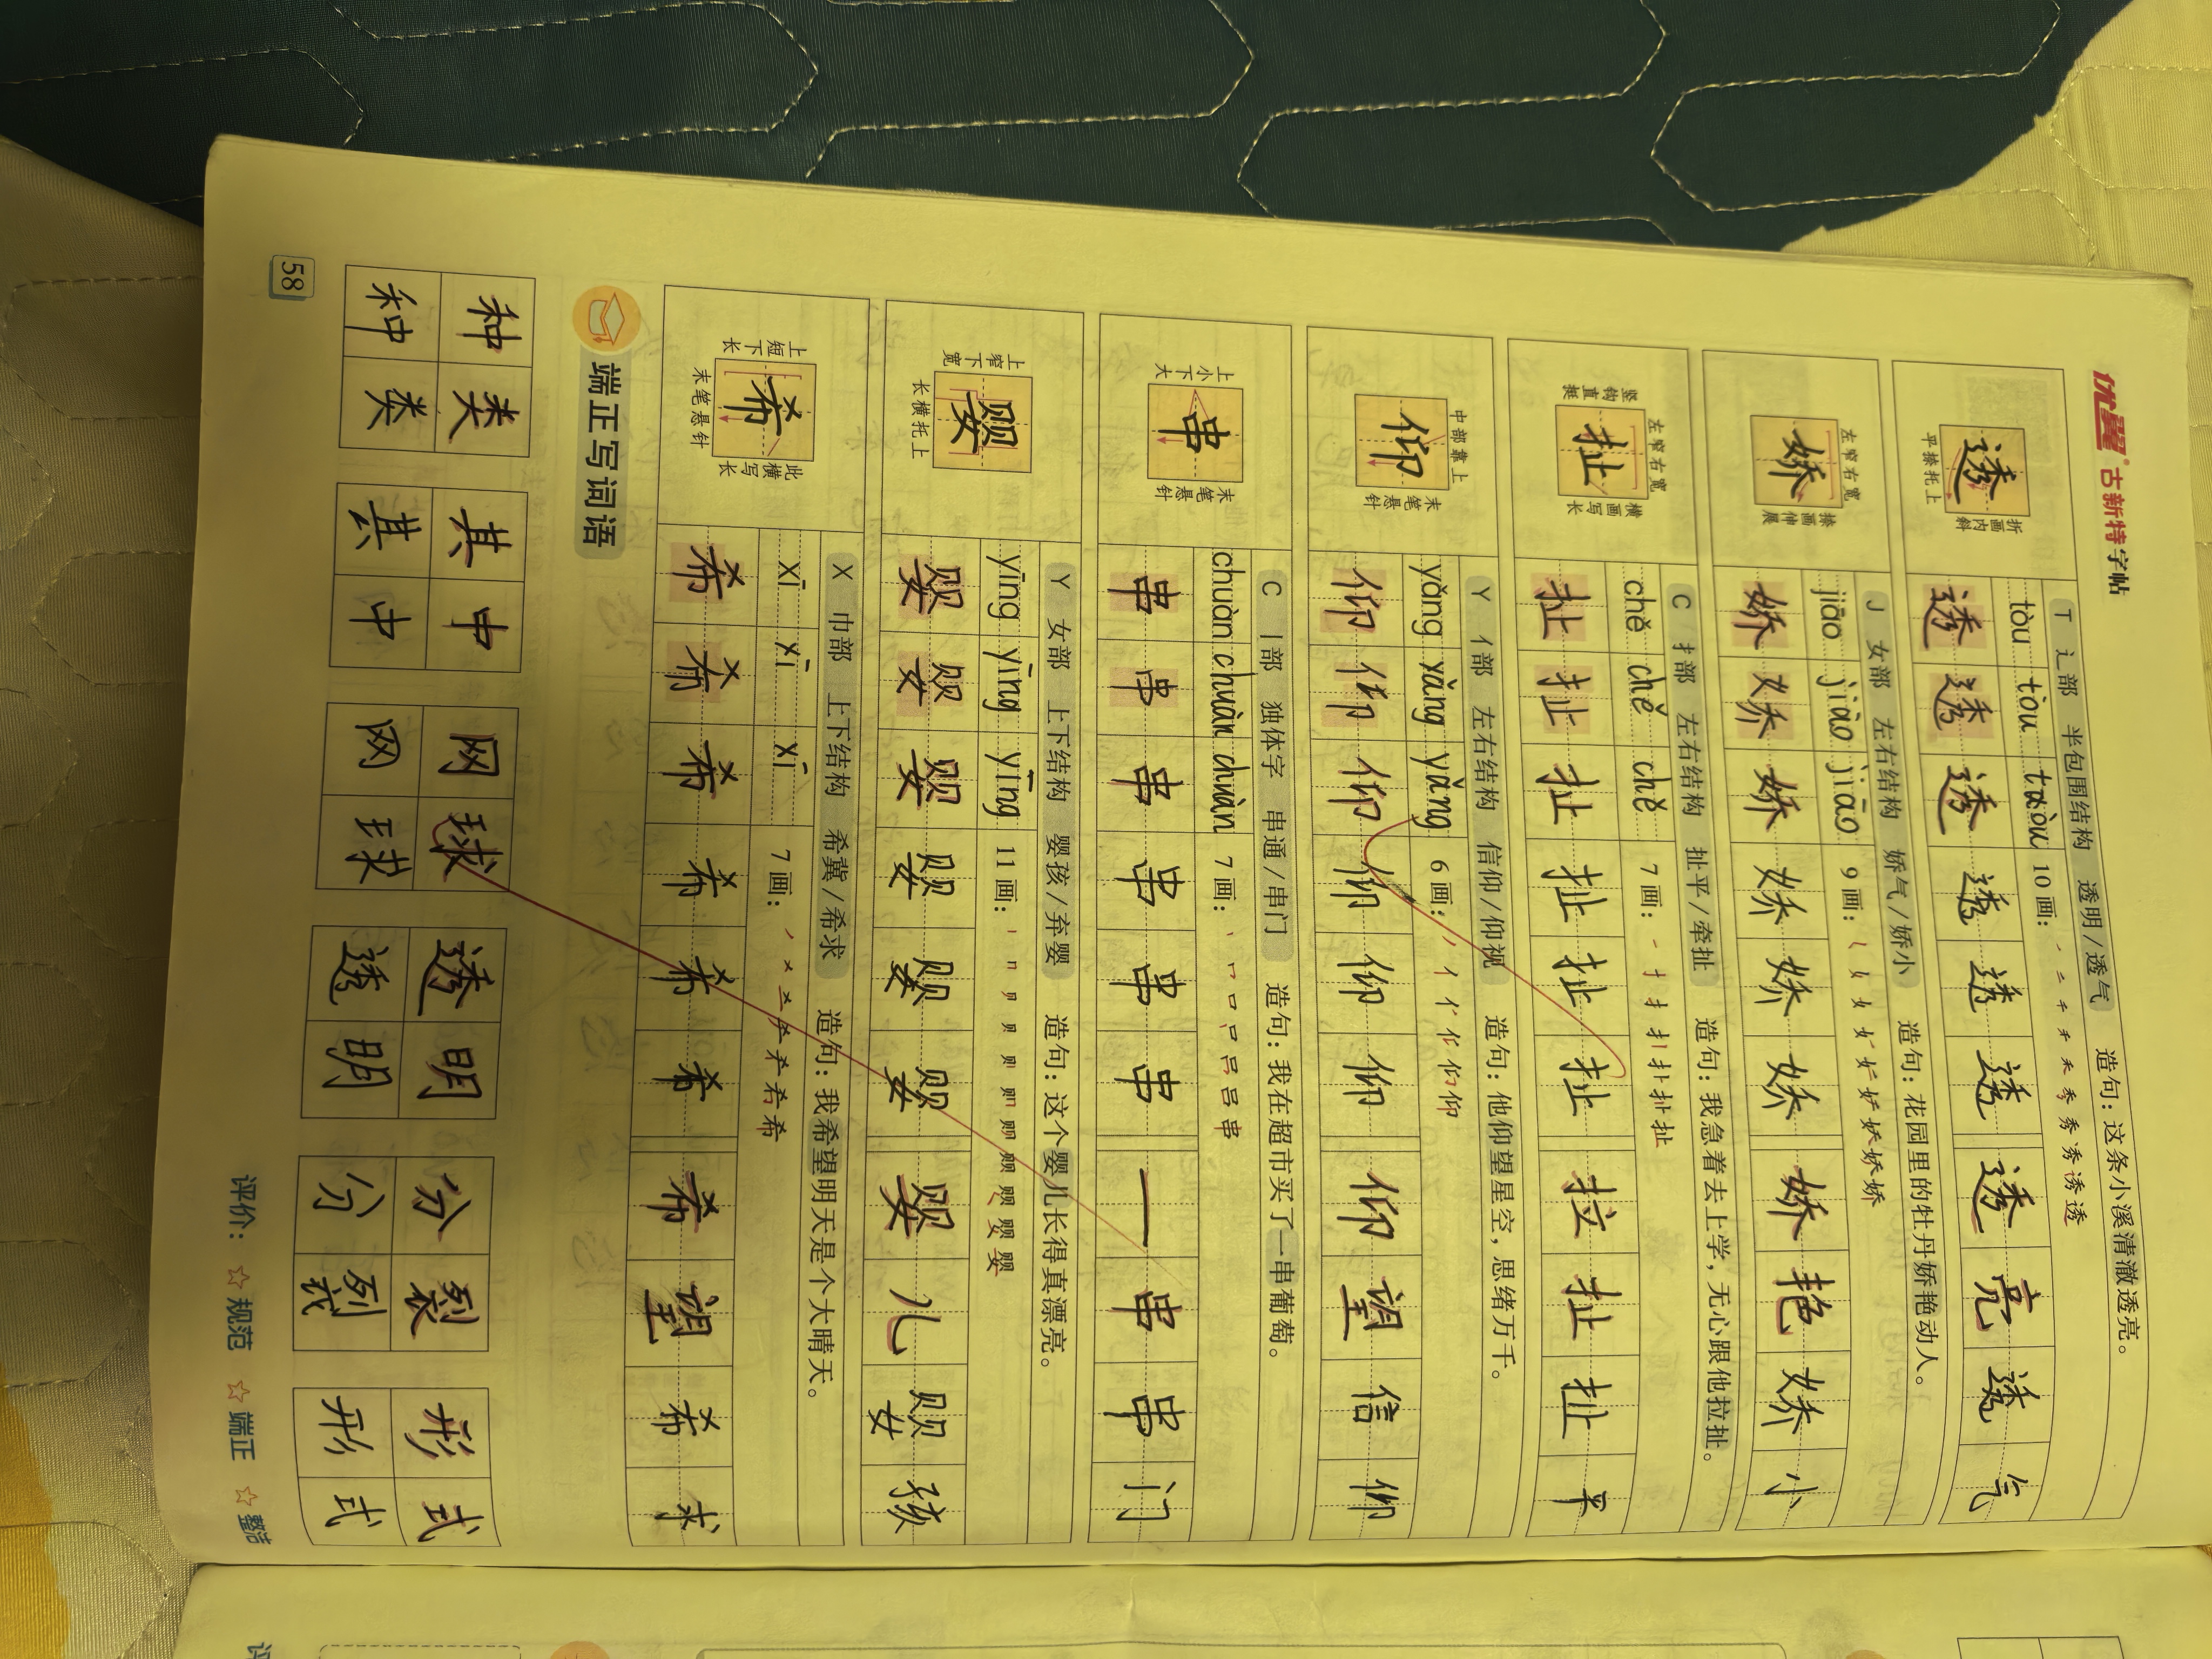 优翼 古新特字帖
左窄右宽
透
折画内斜
平捺托上
T 辶部 半包围结构 透明/透气 造句：这条小溪清澈透亮。
tòu tòu tòu 10画：
透 透 透 透 透 透 透 亮 透 气
左窄右宽
娇
撩画伸展
J 女部 左右结构 娇气/娇小 造句：花园里的牡丹娇艳动人。
jiāo jiāo jiāo 9画：
娇 娇 娇 娇 娇 娇 娇 艳 娇 小
左窄右宽
竖钩直挺
扯
横画写长
C 扌部 左右结构 扯平/牵扯 造句：我急着去上学，无心跟他拉扯。
chě chě chě 7画：
扯 扯 扯 扯 扯 扯 拉 扯 扯 平
中部靠上
仰
末笔悬针
Y 亻部 左右结构 信仰/仰视 造句：他仰望星空，思绪万千。
yǎng yǎng yǎng 6画：
仰 仰 仰 仰 仰 仰 仰 望 信 仰
上小下大
串
末笔悬针
C 丨部 独体字 串通/串门 造句：我在超市买了一串葡萄。
chuàn chuàn chuàn 7画：
串 串 串 串 串 串 一 串 串 门
上窄下宽
婴
长横托上
Y 女部 上下结构 婴孩/弃婴 造句：这个婴儿长得真漂亮。
yīng yīng yīng 11画：
婴 婴 婴 婴 婴 婴 婴 儿 婴 孩
上短下长
希
此横写长
末笔悬针
X 巾部 上下结构 希冀/希求 造句：我希望明天是个大晴天。
xī xī xī 7画：
希 希 希 希 希 希 希 望 希 求
端正写词语
种类 其中 网球 透明 分裂 形式
种类 其中 网球 透明 分裂 形式
评价：☆规范 ☆端正 ☆整洁
58